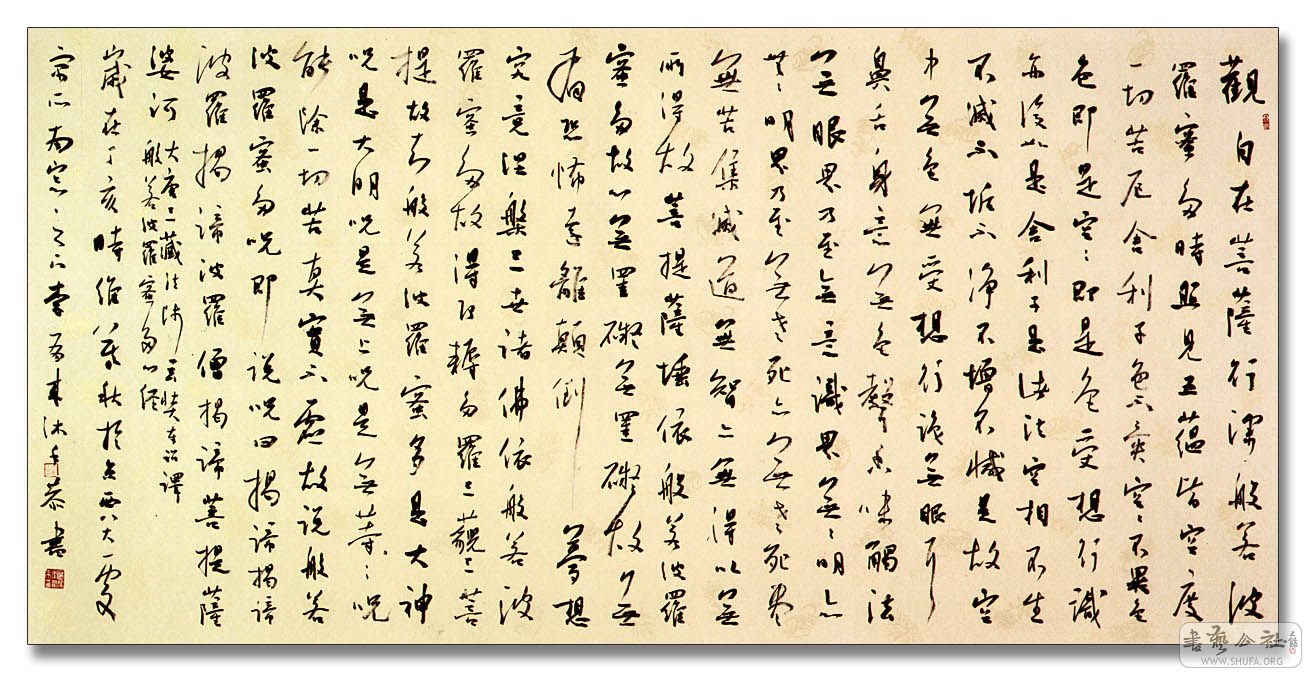 觀自在菩薩行深般若波
羅蜜多時照見五蘊皆空度
一切苦厄舍利子色不異空々不異色
色即是空々即是色受想行識
亦復如是舍利子是諸法空相不生
不滅不垢不淨不增不減是故空
中無色無受想行識無眼耳
鼻舌身意無色聲香味觸法
無眼界乃至無意識界無々明亦
無々明盡乃至無老死亦無老死盡
無苦集滅道無智亦無得以無
所得故菩提薩埵依般若波羅
蜜多故心無罣礙無罣礙故無
有恐怖遠離顛倒夢想
究竟涅槃三世諸佛依般若波
羅蜜多故得阿耨多羅三藐三菩
提故知般若波羅蜜多是大神
呪是大明呪是無上呪是無等々呪
能除一切苦真實不虛故說般若
波羅蜜多呪即說呪曰揭諦揭諦
波羅揭諦波羅僧揭諦菩提薩
婆訶
大唐三藏法師玄奘奉詔譯
般若波羅蜜多心經
歲在丁亥時維秋於西八大一處
李沐手恭書
書藝公社
WWW.SHUFA.ORG